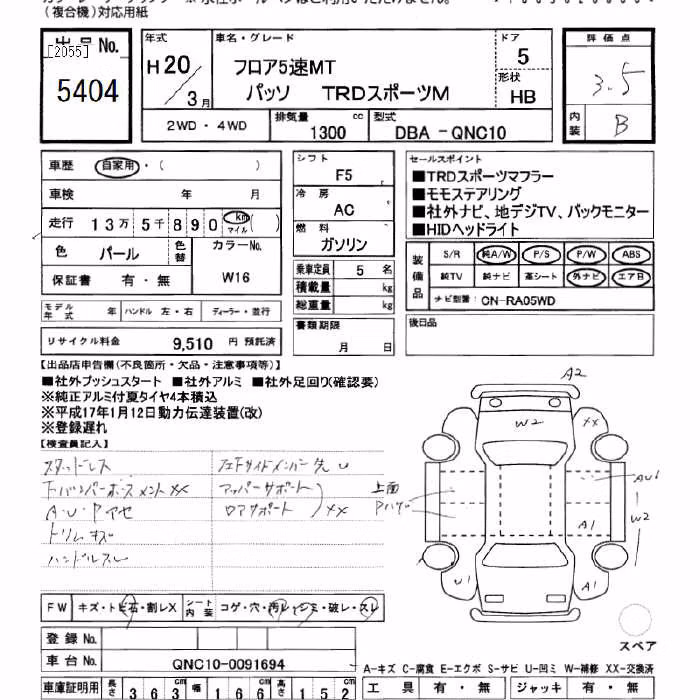 (複合機)対応用紙
出品No.
[2055]
5404
年式
H20/3月
車名・グレード
フロア5速MT
パッソ TRDスポーツM
ドア
5
形状
HB
評価点
3.5
内装
B
2WD・4WD
排気量
1300 cc
型式
DBA-QNC10
車歴
自家用・( )
車検 年 月
走行 13万5千890 km マイル ( )
色 パール
色替
カラーNo.
W16
保証書 有・無
モデル年式 年
ハンドル 左・右
ディーラー・並行
リサイクル料金 9,510 円 預託済
シフト
F5
冷房
AC
燃料
ガソリン
乗車定員 5 名
積載量 kg
総重量 kg
書類期限
月 日
セールスポイント
■TRDスポーツマフラー
■モモステアリング
■社外ナビ、地デジTV、バックモニター
■HIDヘッドライト
装備品
S/R 純A/W P/S P/W ABS
純TV 純ナビ 革シート 外ナビ エアB
ナビ型番: CN-RA05WD
後日品
【出品店申告欄(不良箇所・欠品・注意事項等)】
■社外プッシュスタート ■社外アルミ ■社外足回り(確認要)
※純正アルミ付夏タイヤ4本積込
※平成17年1月12日動力伝達装置(改)
※登録遅れ
【検査員記入】
スタッドレス
フロントサイドメンバー先 U
F.バンパーホースメント XX
アッパーサポート
ロアサポート
XX
A・U・P アセ
トリムキズ
ハンドルスレ
上面
Pハゲ
A2
W2
XX
AU1
W2
A1
A1
U1
FW キズ・トビ石・割レX
シート内装 コゲ・穴・汚レ・シミ・破レ・スレ
登録No.
車台No. QNC10-0091694
スペア
A-キズ C-腐食 E-エクボ S-サビ U-凹ミ W-補修 XX-交換済
車庫証明用 長さ 363 cm 幅 166 cm 高さ 152 cm
工具 有・無 ジャッキ 有・無